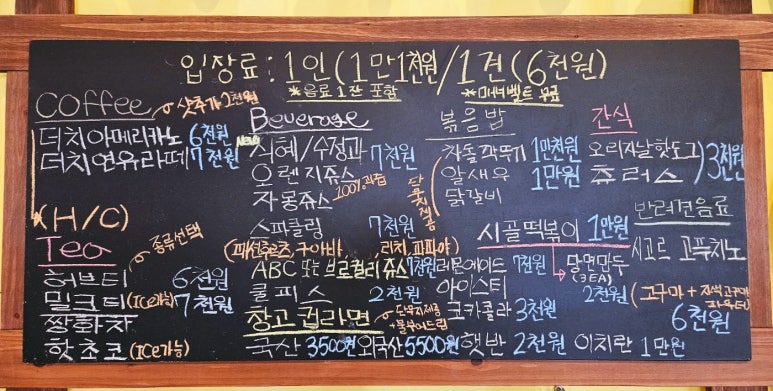 입장료 : 1인 (1만1천원 / 1견 (6천원)
*음료 1잔 포함 *매너벨트 무료
Coffee 샷추가 2천원
더치아메리카노 6천원
더치연유라떼 7천원
(H/C)
Tea 종류선택
허브티 6천원
밀크티 (Ice가능) 7천원
쌍화차
핫초코 (Ice가능)
Beverage
New 식혜/수정과 7천원
오렌지쥬스
자몽쥬스 100% 과즙
스파클링 7천원
(패션후르츠, 구아바, 리치, 파파야)
ABC 또는 브로컬리쥬스 7천원
쿨피스 2천원
레몬에이드 7천원
아이스티
코카콜라 3천원
창고컵라면 단무지제공 +물부어드림
국산 3500원 외국산 5500원 햇반 2천원 이치란 1만원
볶음밥
차돌깍뚜기 1만천원
알새우 1만원
닭갈비
단무지제공
시골떡볶이 1만원
당면만두 (3EA) 2천원
간식
오리지날핫도그 3천원
츄러스
반려견음료
시고르 고푸치노
(고구마 + 자색고구마 파우더)
6천원